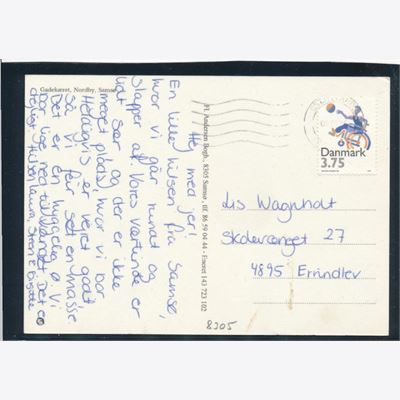 Gadekæret, Nordby, Samsø
Hej med jer!
En lille hilsen fra Samsø,
hvor vi går rundt og
slapper af. Vores værtinde er
lidt sær og der er ikke
meget plads, hvor vi bor.
Heldigvis er vejret godt
så vi får set en masse
Det er en hyggelig ø. Vi
bor lige ned til vandet. Det er
dejligt. Hilsen Laura, Steen &
Fl. Andersen Bogh., 8305 Samsø, tlf. 86 59 04 44 - Eneret 143 723 102
Danmark
3.75
Lis Wagnholt
Skolevænget 27
4895 Errindlev
8305